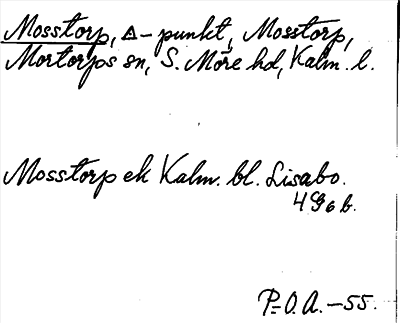 Mosstorp, △-punkt, Mosstorp,
Mortorps sn, S. Möre hd, Kalm. l.
Mosstorp ek Kalm. bl. Lisabo.
4 9 6 b.
P.O.A. -55.